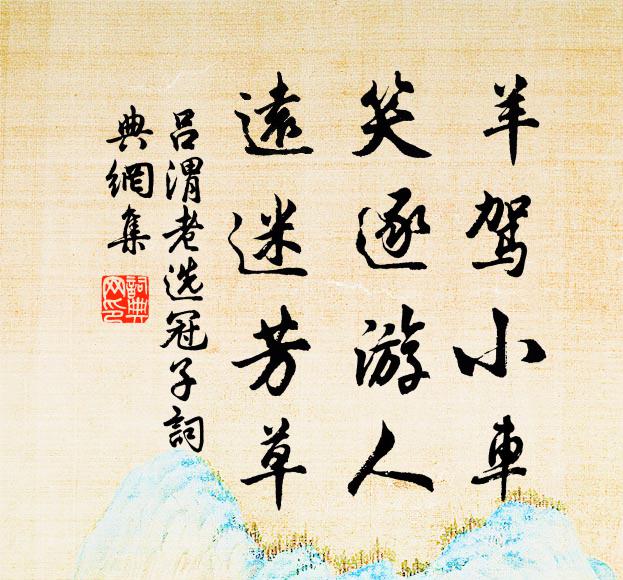 羊駕小車
笑逐游人
遠迷芳草
呂渭老选冠子詞
典網集
詞典
网印